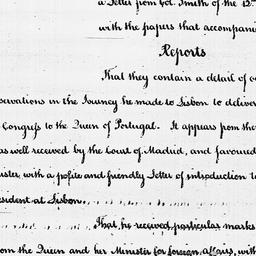 a Letter from Col. Smith of the 12th
with the papers that accompani
Reports
That they contain a detail of o
servations in the Journey he made to Lisbon to deliver
Congress to the Queen of Portugal. It appears from the
as well received by the Court of Madrid, and favoured
ister, with a polite and friendly Letter of introduction to
esident at Lisbon
That he received particular marks
om the Queen and her Minister for foreign affairs, with